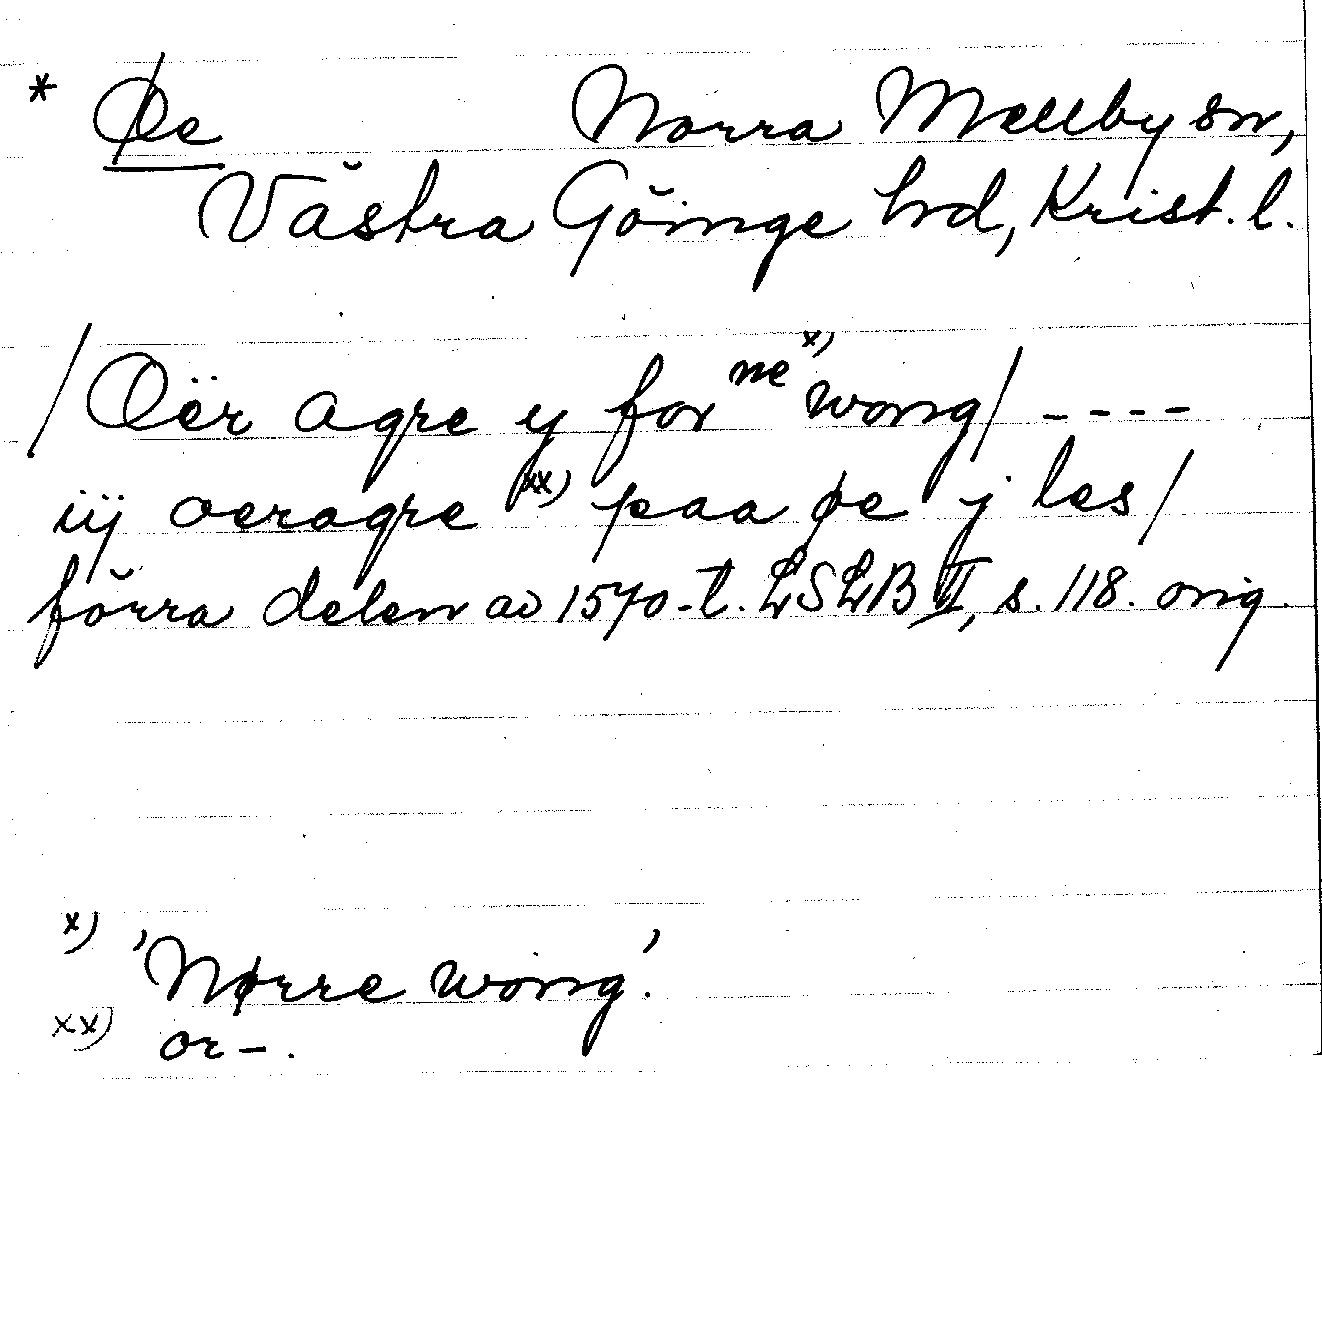 * Øe Norra Mellby sn,
Västra Göinge hd, Krist. l.
/Oër agre y for ne x) wong/ ----
iij oeragre xx) paa øe j les/
förra delen av 1570-t. LSLB II, s. 118. orig.
x) 'Nørre wong'.
xx) or-.